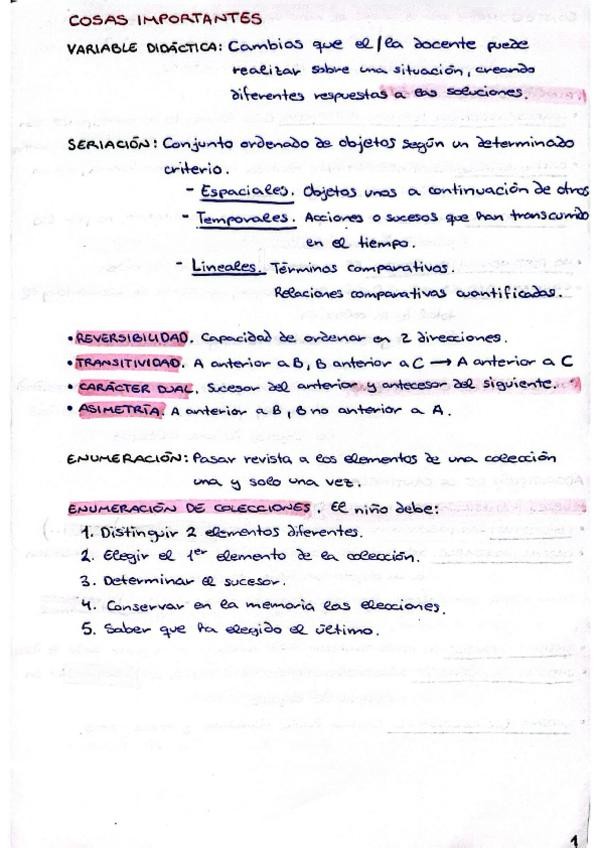 COSAS IMPORTANTES
VARIABLE DIDÁCTICA: Cambios que el/la docente puede
realizar sobre una situación, creando
diferentes respuestas a las soluciones.
SERIACIÓN: Conjunto ordenado de objetos según un determinado
criterio.
- Espaciales. Objetos unos a continuación de otros
- Temporales. Acciones o sucesos que han transcurrido
en el tiempo.
- Lineales. Términos comparativos.
Relaciones comparativas cuantificadas.
• REVERSIBILIDAD. Capacidad de ordenar en 2 direcciones.
• TRANSITIVIDAD. A anterior a B, B anterior a C → A anterior a C
• CARÁCTER DUAL. Sucesor del anterior y antecesor del siguiente.
• ASIMETRÍA. A anterior a B, B no anterior a A.
ENUMERACIÓN: Pasar revista a los elementos de una colección
una y solo una vez.
ENUMERACIÓN DE COLECCIONES. El niño debe:
1. Distinguir 2 elementos diferentes.
2. Elegir el 1er elemento de la colección.
3. Determinar el sucesor.
4. Conservar en la memoria las elecciones.
5. Saber que ha elegido el último.
1